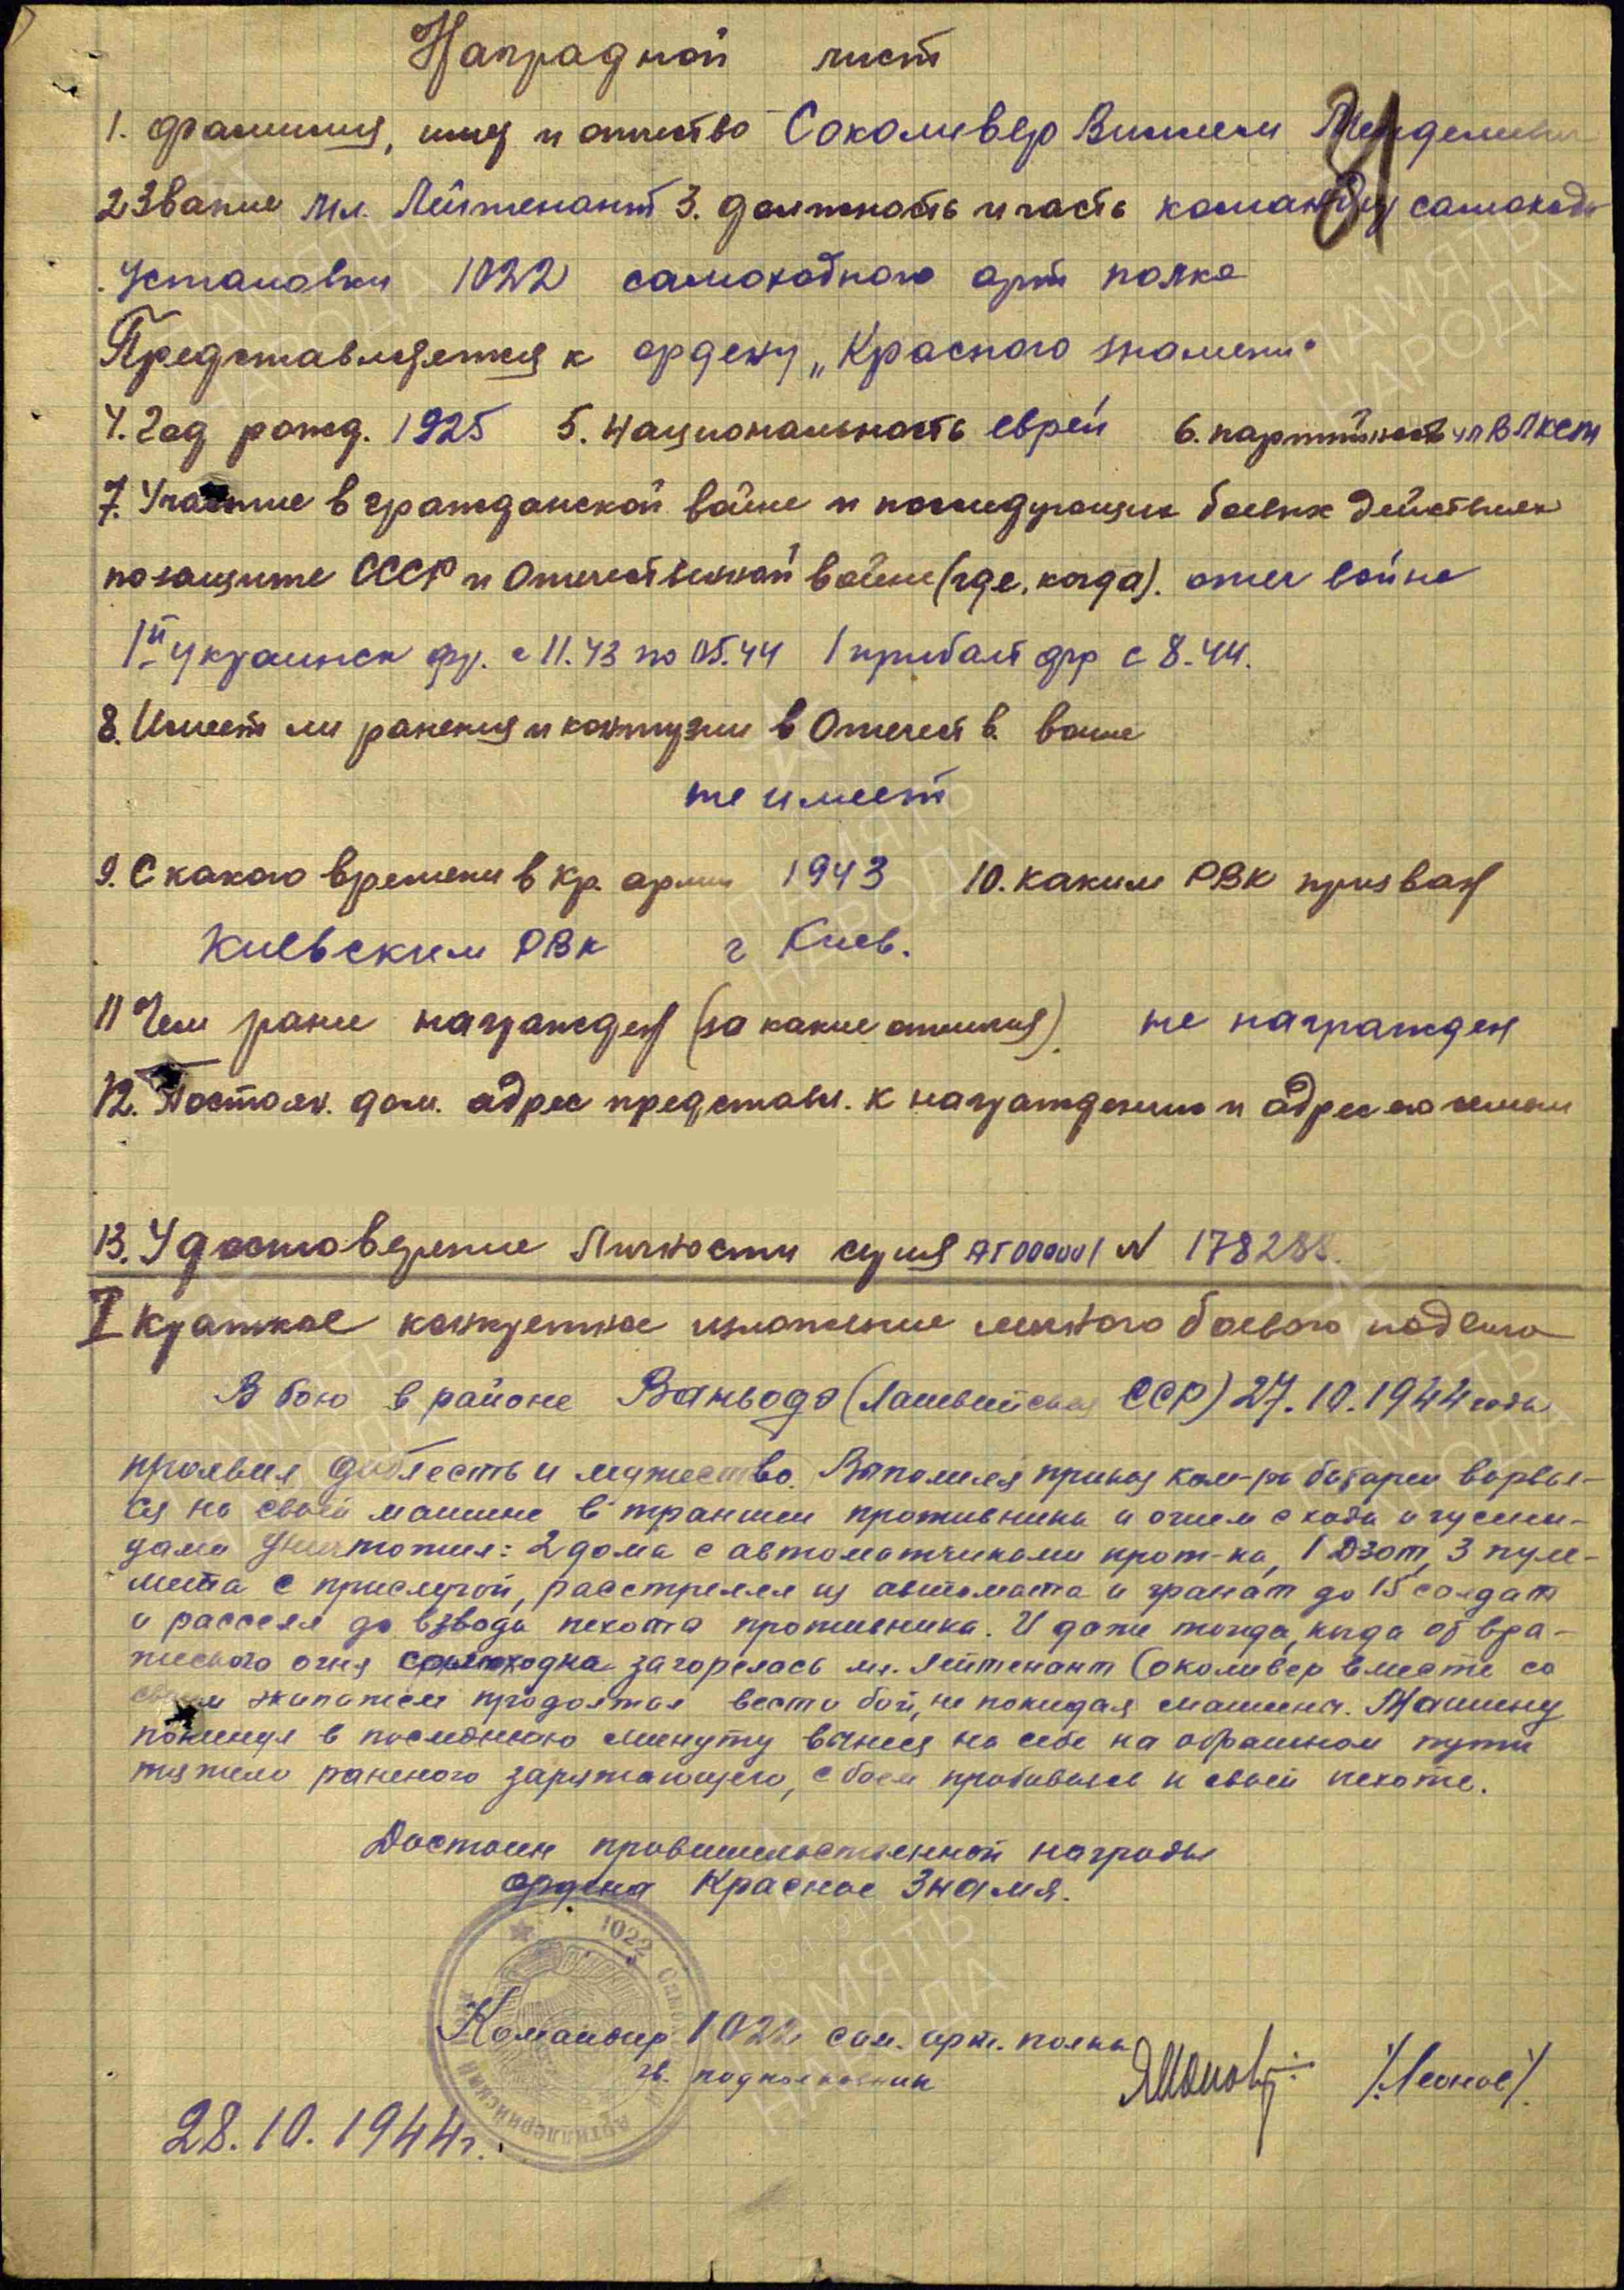 Наградной лист
1. Фамилия, имя и отчество Соколивер Вилмем Менделевич
2 Звание мл. Лейтенант 3. должность и часть командир самоходн
установки 1022 самоходного арт полка
Представляется к ордену „Красного знамени"
4. Год рожд. 1925 5. Национальность еврей 6. партийность чл ВЛКСМ
7. Участие в гражданской войне и последующих боевых действиях
по защите СССР и Отечественной войне (где, когда). отеч войне
1й украинск фр. с 11.43 по 05.44 1 прибалт фр с 8.44.
8. Имеет ли ранения и контузии в Отечеств. войне
не имеет
9. С какого времени в кр. армии 1943 10. каким РВК призван
Киевским РВК г Киев.
11 Чем ранее награжден (за какие отличия). не награжден
12. Постоян. дом. адрес представл. к награждению и адрес его семьи
13. Удостоверение Личности серия АГ 000001 N 178288.
I Краткое конкретное изложение личного боевого подвига
В бою в районе Ваньода (Латвийская ССР) 27.10.1944 года
проявил доблесть и мужество. Выполняя приказ ком-ра батареи ворвал-
ся на своей машине в траншеи противника и огнем с хода и гусени-
цами уничтожил: 2 дома с автоматчиками прот-ка, 1 ДЗОТ, 3 пуле-
мета с прислугой, расстрелял из автомата и гранат до 15 солдат
и рассеял до взвода пехоты противника. И даже тогда, когда от вра-
жеского огня самоходка загорелась мл. лейтенант Соколивер вместе со
своим экипажем продолжал вести бой, не покидая машины. Машину
покинул в последнюю минуту вынеся на себе на обратном пути
тяжело раненого заряжающего, с боем пробивался к своей пехоте.
Достоин правительственной награды
ордена Красное Знамя.
1022
Артиллерийский
Командир 1022 сам. арт. полка
гв. подполковник /Леонов/
28.10.1944г.
81
ПАМЯТЬ
НАРОДА
1941-1945